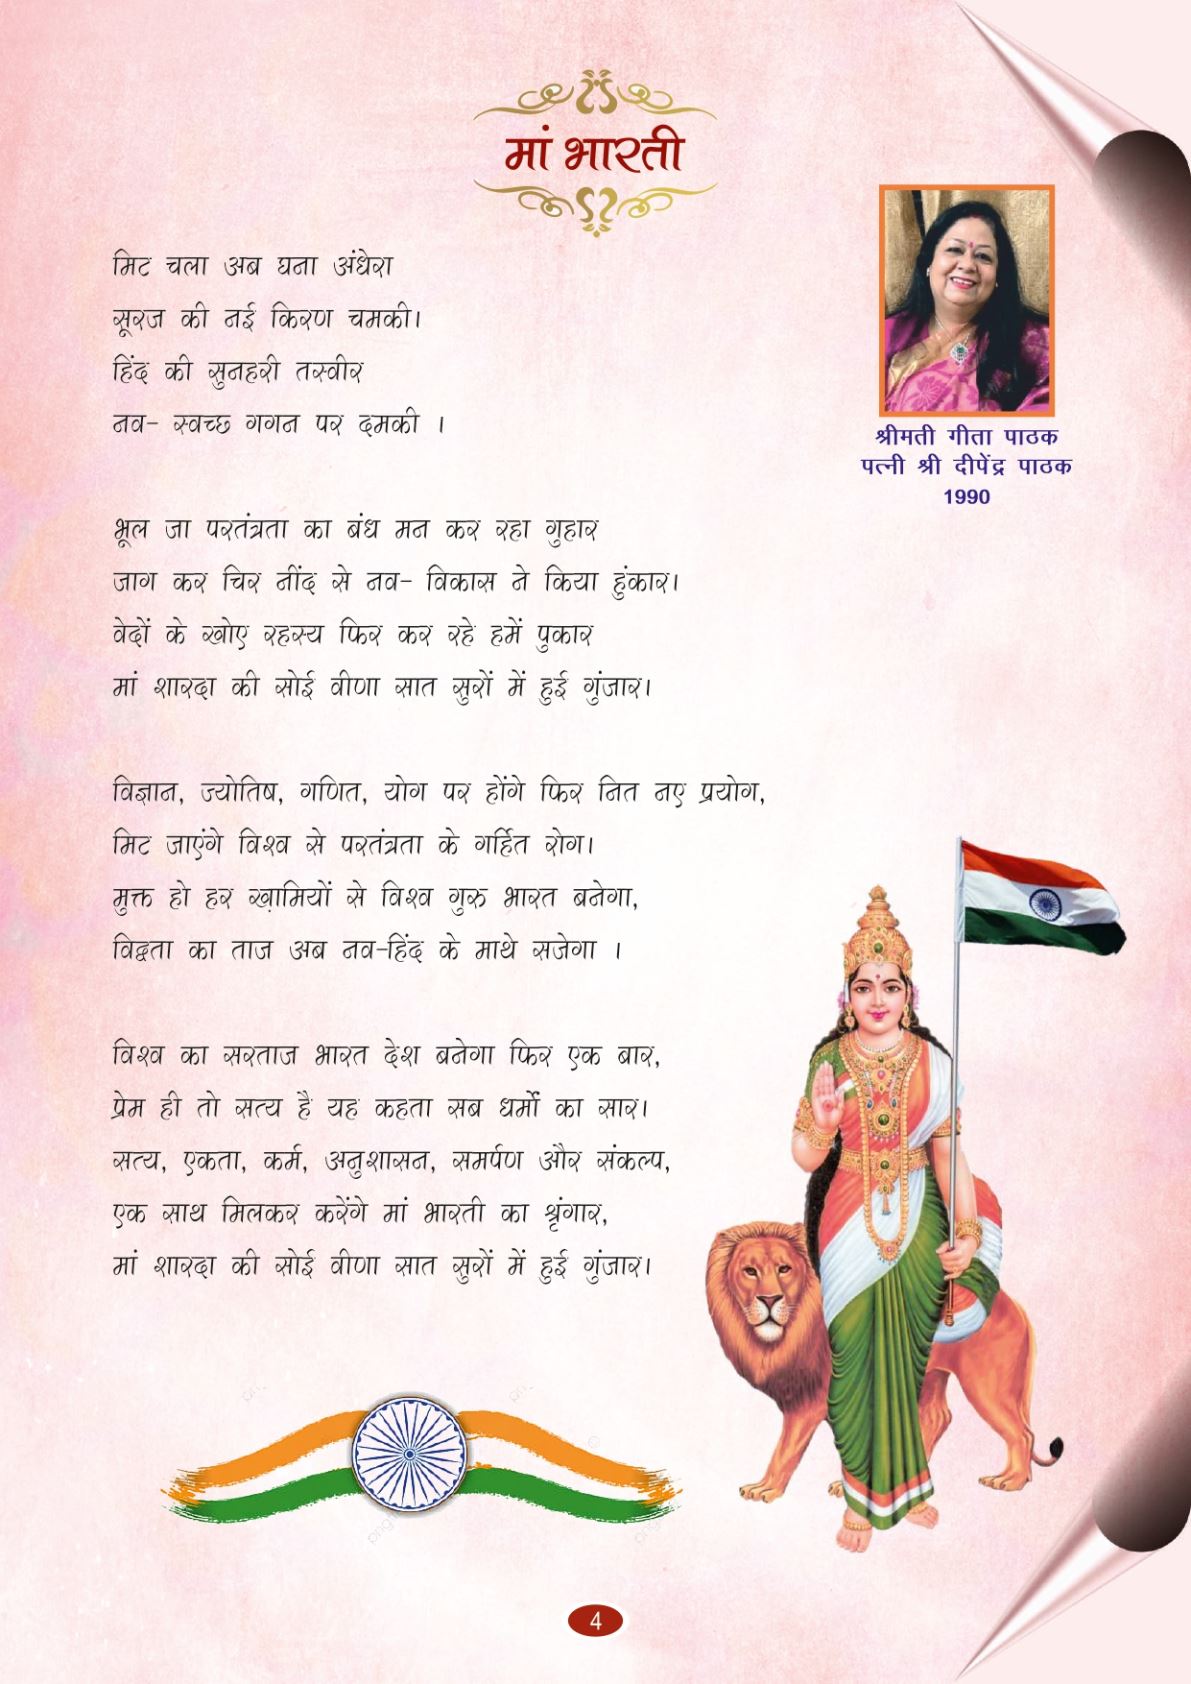 मां भारती
मिट चला अब घना अंधेरा
सूरज की नई किरण चमकी।
हिंद की सुनहरी तस्वीर
नव- स्वच्छ गगन पर दमकी ।
श्रीमती गीता पाठक
पत्नी श्री दीपेंद्र पाठक
1990
भूल जा परतंत्रता का बंध मन कर रहा गुहार
जाग कर चिर नींद से नव- विकास ने किया हुंकार।
वेदों के खोए रहस्य फिर कर रहे हमें पुकार
मां शारदा की सोई वीणा सात सुरों में हुई गुंजार।
विज्ञान, ज्योतिष, गणित, योग पर होंगे फिर नित नए प्रयोग,
मिट जाएंगे विश्व से परतंत्रता के गर्हित रोग।
मुक्त हो हर ख़ामियों से विश्व गुरु भारत बनेगा,
विद्वता का ताज अब नव-हिंद के माथे सजेगा ।
विश्व का सरताज भारत देश बनेगा फिर एक बार,
प्रेम ही तो सत्य है यह कहता सब धर्मों का सार।
सत्य, एकता, कर्म, अनुशासन, समर्पण और संकल्प,
एक साथ मिलकर करेंगे मां भारती का श्रृंगार,
मां शारदा की सोई वीणा सात सुरों में हुई गुंजार।
4